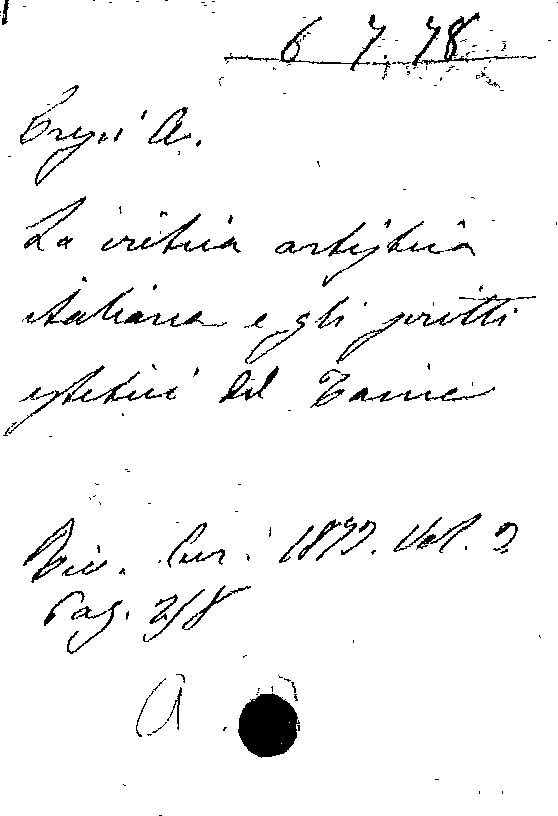 6 7.78
A.
La critica artistica
italiana e gli scritti
estetici del Taine
Riv. Eur. 1877. Vol. 2
Pag. 258
A.